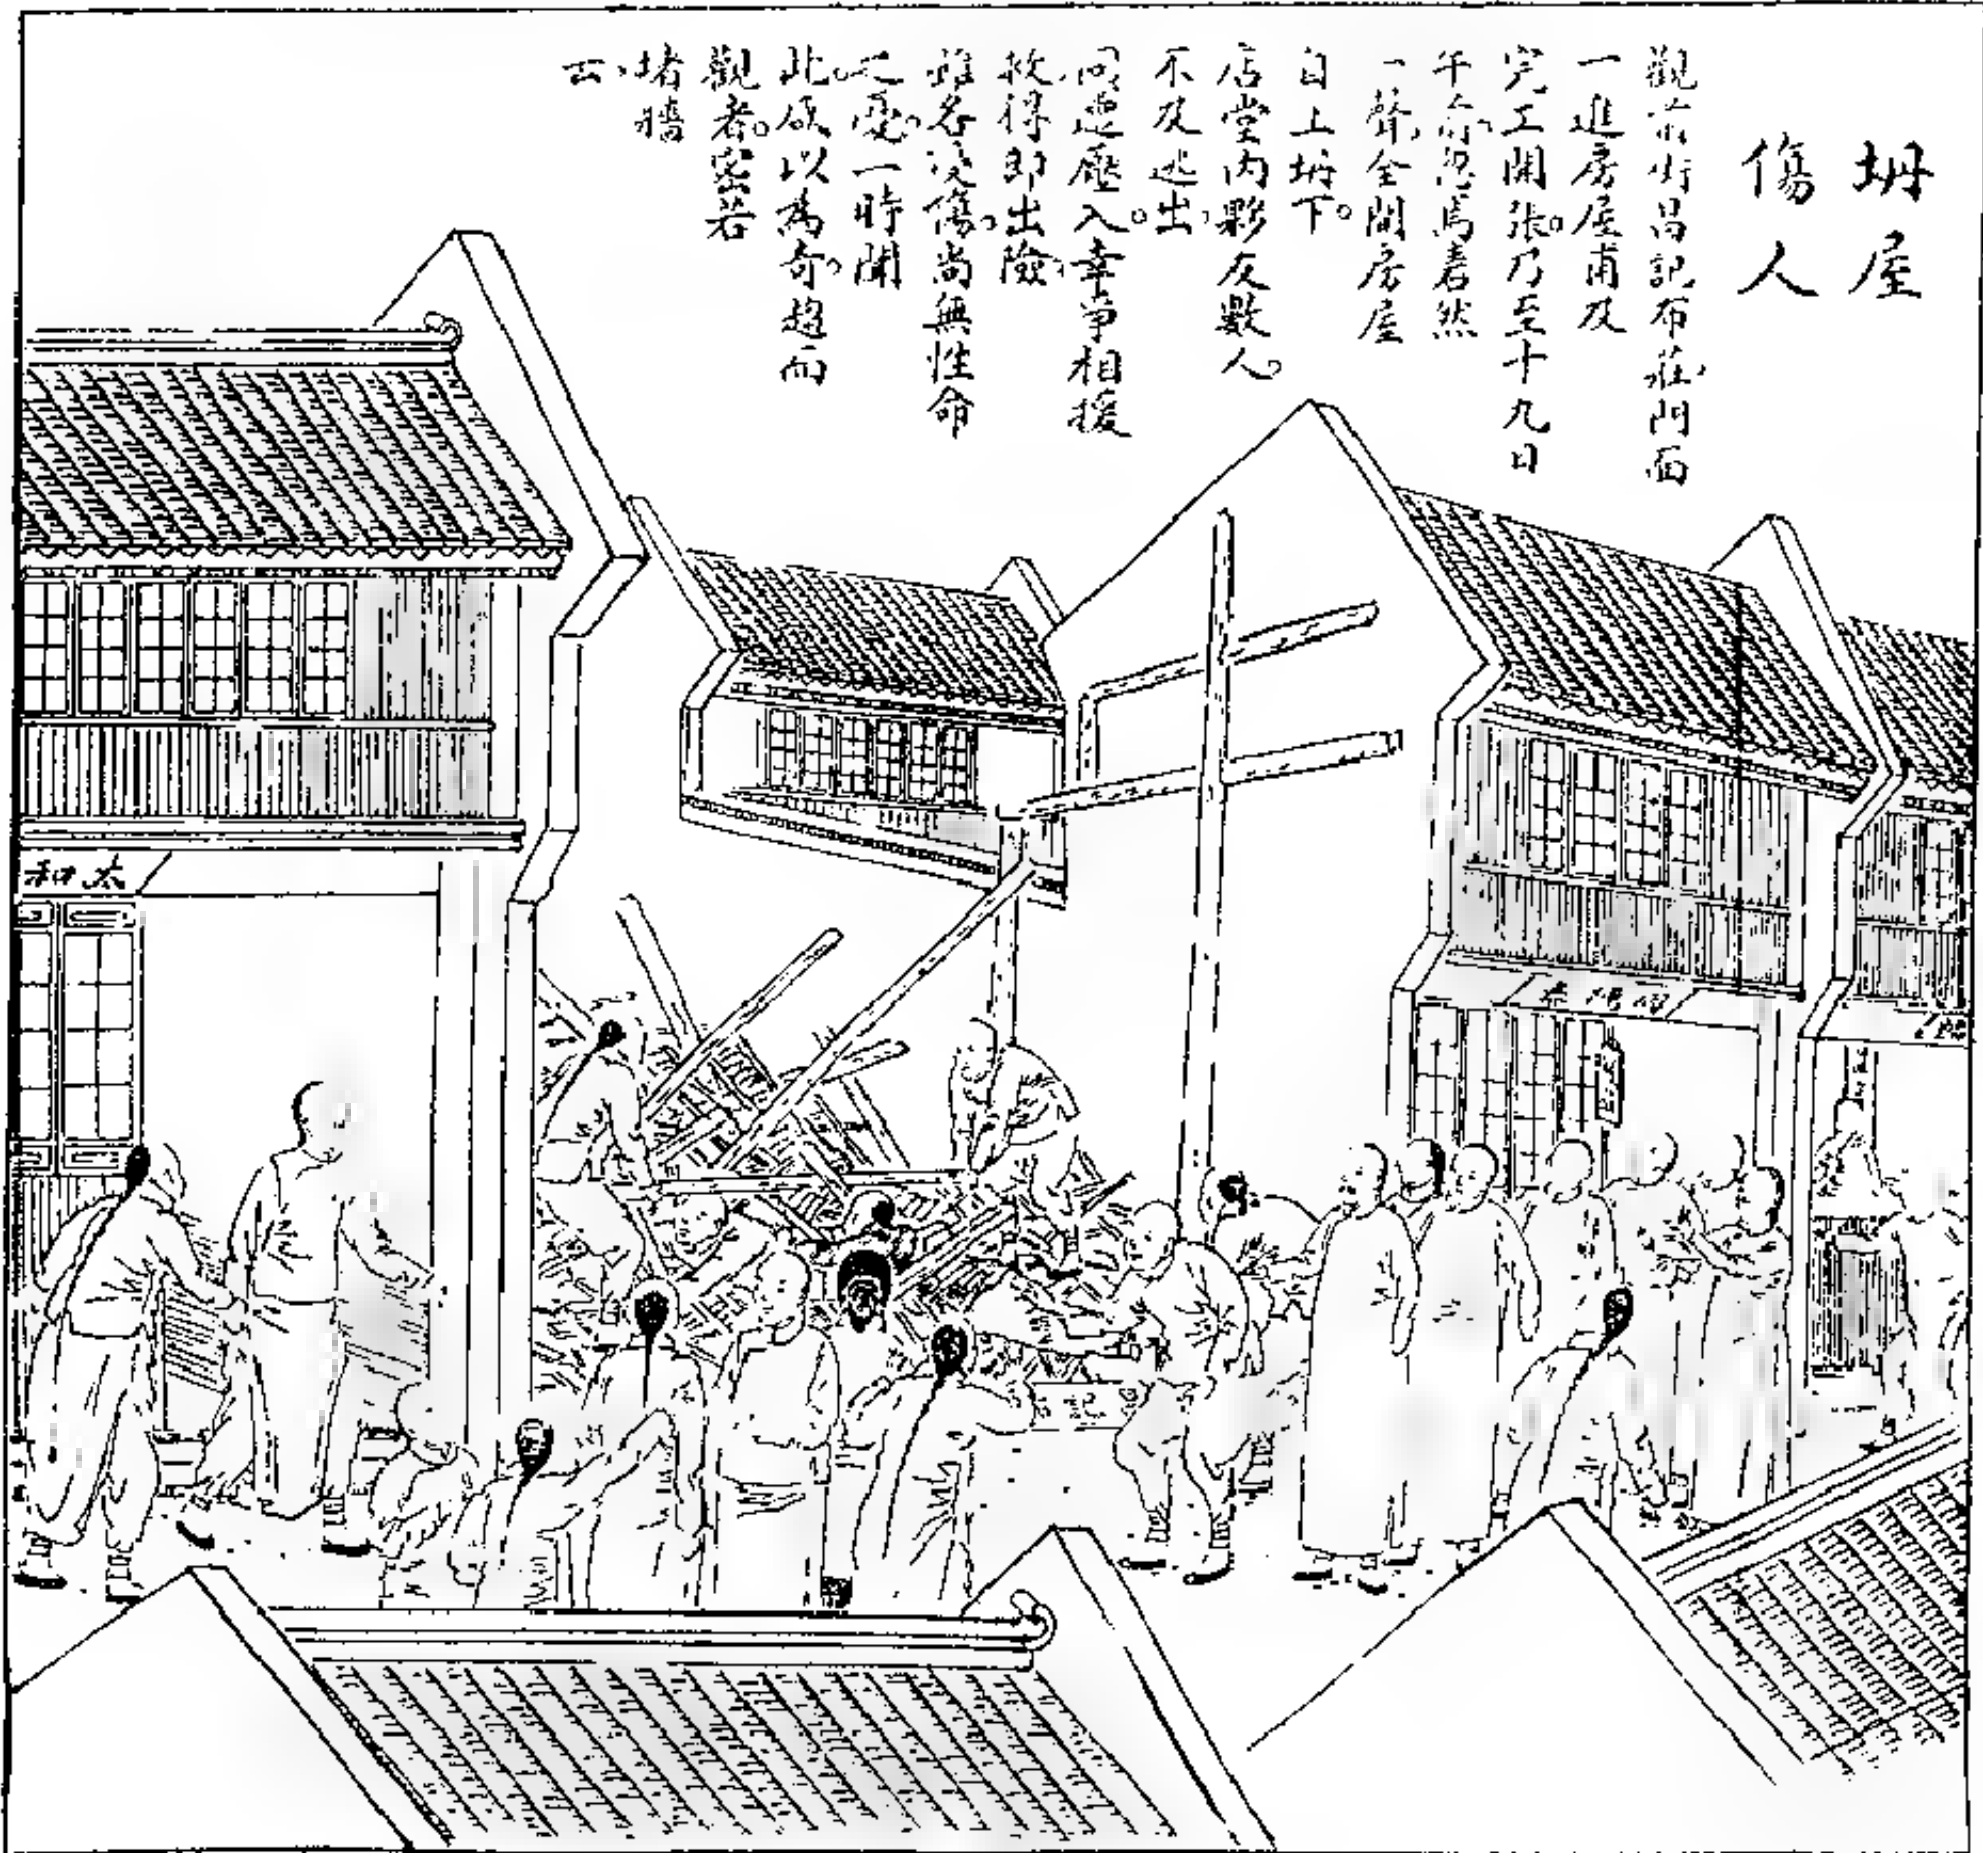 坍屋
傷人
觀前街昌記布莊門面
一進房屋甫及
完工開張乃至十九日
午前忽焉砉然
一聲全間房屋
自上坍下。
店堂內夥友數人。
不及逃出
同遭壓入。幸爭相援
救得即出險
雖各受傷。尚無性命
之憂。一時閧
此。咸以為奇。趨而
觀者。密若
堵牆
云
太和
記